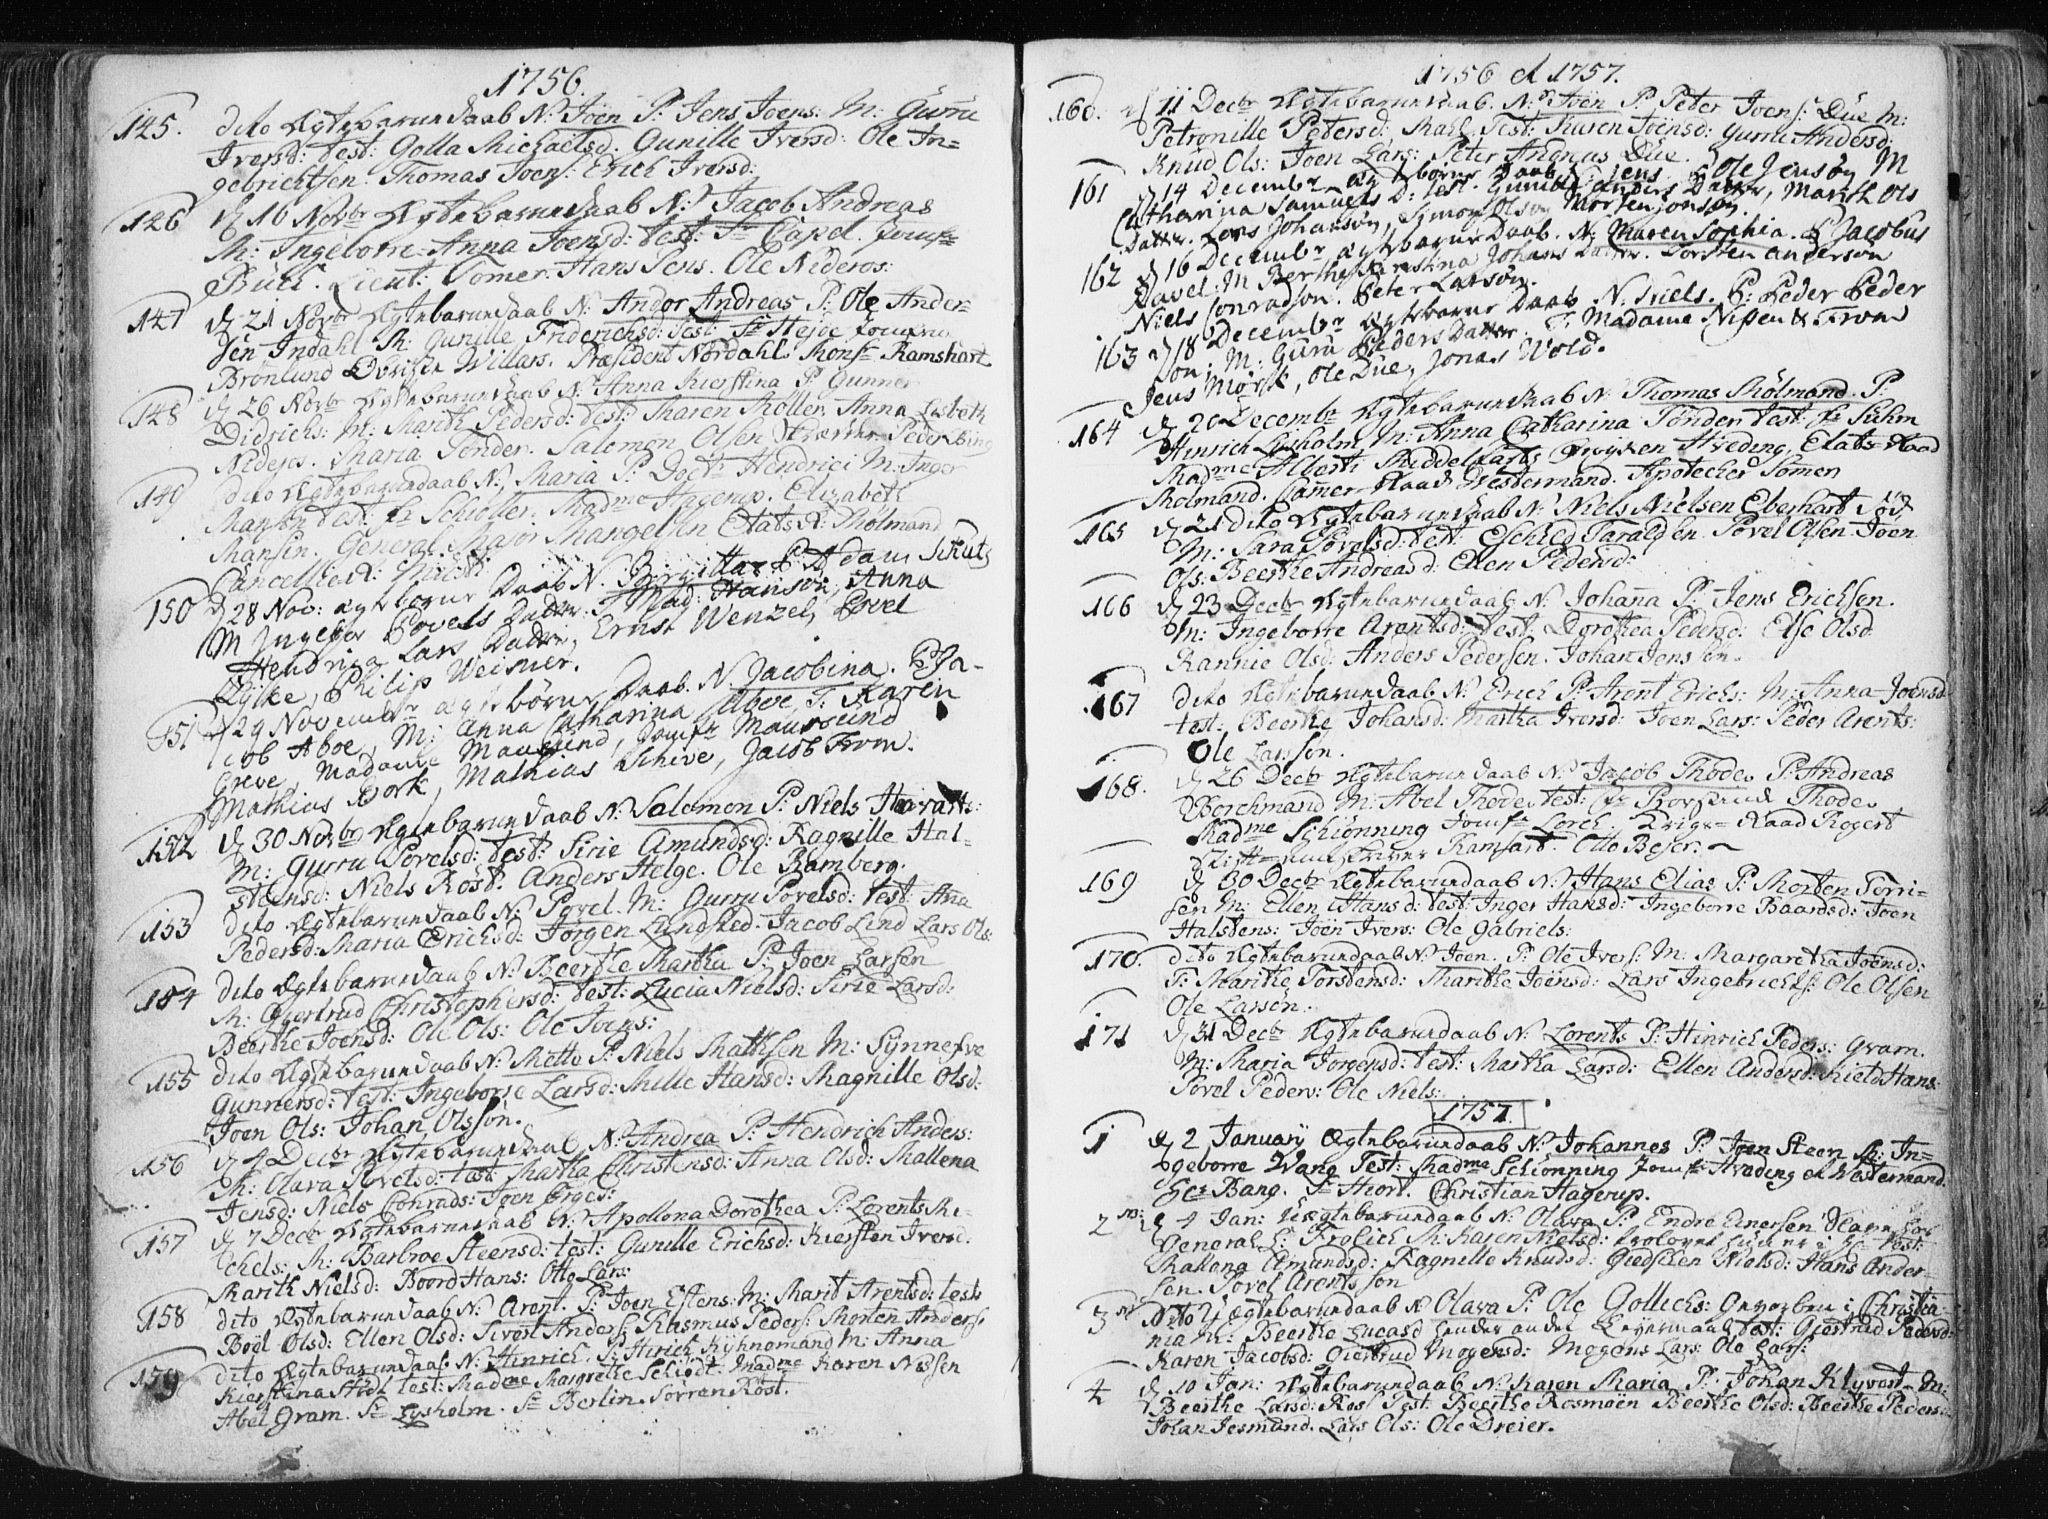 1756.
145. dito Ægtebarn daab N: Joen P: Jens Joens: M: Gurru
Iversd: test: Golla Michaelsd. Gunille Iversd: Ole In-
gebrichtsen. Thomas Joens: Erich Ivers:
146 d 16 Novbr Ægtebarn daab N: Jacob Andreas
M: Ingeborre Anna Joensd: test: Sr Capel. Jomfr
Buch. Lieut. Somer. Hans Jens. Ole Nideros:
147 d 21 Novbr Ægtebarn daab N: Andor Andreas P: Ole Ander-
sen Indahl M: Gunille Friderichsd: test: Sr Hejde Jomfru
Brønlund Willars. Præsident Nordahl. Monsr Ramshart
148 d 26 Novbr Ægtebarn daab N: Anna Kierstina P: Gunner
Didrichs: M: Marith Pedersd: test: Maren Møller. Anna Lisbeth
Nideros. Maria Tønder. Salomon Olsen Peder Bing
149 dito Ægtebarn daab N: Maria P: Doctr Hendrici M: Inger
Mansin test: Fr Schiøller. Madme Hagerup. Elizabeth
Mansin. General Major Mangelsen Etats R: Mølmand
Cancellie R:
150 d 28 Nov: ægtebørne Daab N. Birgitta P. Adam Schutz
M Ingebor Povels Datter. T. Mad: Hanson, Anna
Hendrica Lars Datter, Ernst Wenzel, Povel
Eyike, Philip Weisner.
151 d 29 Novembr ægtebørne Daab. N. Jacobina. P Ja-
cob Aboe, M: Anna Catharina Aboe, T. Karen
Greve, Madame Mausund, Jomfr Mausund
Mathias Bork, Mathias Schive, Jacob From.
152 d 30 Novbr Ægtebarn daab N: Salomon P: Niels Havarts:
M: Gurru Povelsd: test: Sirie Amundsd: Ragnille Hal-
steensd: Niels Røst: Anders Helge. Ole Bamberg.
153 dito Ægtebarn daab N: Povel. M: Gurru Povelsd: test: Ana
Pedersd: Maria Erichsd: Jørgen Lungsted. Jacob Lind Lars Ols:
154 dito Ægtebarn daab N: Beerthe Martha P: Joen Larsen
M: Giertrud Christophersd: test: Lucia Nielsd: Sirie Larsd:
Beerthe Joensd: Ole Ols: Ole Joens:
155 dito Ægtebarn daab N: Mette P: Niels Mathsen M: Synnefve
Gunnersd: test: Ingeborre Larsd: Mille Hansd: Magnille Olsd:
Joen Ols: Johan Olsson.
156 d 4 Decbr Ægtebarn daab N: Andrea P: Hendrich Anders:
M: Olava Povelsd: test Martha Christensd: Anna Olsd: Mallena
Jensd: Niels Conrads: Joen Erges:
157 d 7 Decbr Ægtebarn daab N: Apollona Dorothea P: Lorents Mi-
chels: M: Barbroe Steensd: test: Gunille Erichsd: Kiersten Iversd.
Marith Nielsd: Boord Hans: Otto Lars:
158 dito Ægtebarn daab N: Arent. P: Joen Estens: M: Marit Arentsd: test:
Boel Olsd: Ellen Olsd: Sivert Anders: Rasmus Peders: Morten Anders:
159 dito Ægtebarn daab N: Hinrich. P: Hinrich Kyhnemand M: Anna
Kierstina test: Madme Margrethe Schiødt. Madme Karen Nissen
Abel Gram. Sr Lysholm. Sr Berlin. Sørren Røst.
1756 et 1757.
160. d 11 Decbr Ægtebarn daab. N: Joen P: Peter Joens: Due M:
Petronille Petersd: Mahl Test: Karen Joensd: Gurru Andersd:
Knud Ols: Joen Lars: Peter Angnus Due.
161 d 14 Decembr ægtebørne Daab N: Jens. P Ole Jensøn M
Catharina Samuels D: test. Gunille Anders Datter, Marith Ols
Datter. Lars Johansøn, Symon Olsøn Morten Jonsøn.
162 d 16 Decembr ægtebarns Daab. N: Maren Sophia. P Jacobus
Davel: M Berthe Kirstina Johans Datter. Torsten Anderson
Niels Conradson. Peter Larsøn.
163 d 18 Decembr Ægtebarns Daab N. Niels. P: Peder Peder
son: M: Guru Peders Datter. T: Madame Nissen & From
Jens Mørk, Ole Due, Jonas Wold.
164 d 20 Decembr Ægtebarn daab N: Thomas Mølmand. P:
Hinrich Lysholm M: Anna Catharina Tønder test: Fr Suhm
Madme Alberti Middelfarts Frøyken Hveding, Etats Raad
Mølmand. Camer Raad Vestermand. Apotecher Sømen
165 d 21 dito Ægtebarn daab N: Niels Nielsen Eberhart død
M: Sara Povelsd: test: Esched Taralsen. Povel Olsen. Joen
Ols: Beerthe Andreasd: Ellen Pedersd:
166 d 23 Decbr Ægtebarn daab N: Johana P: Jens Erichsen.
M: Ingeborre Arentsd: test: Dorothea Pedersd: Else Olsd
Rannie Olsd: Anders Pedersen. Johan Jenssøn.
167 dito Ægtebarn daab N: Erich P: Arent Erichs: M: Anna Joensd
test: Beerthe Johansd: Martha Iversd: Joen Lars: Peder Arents:
Ole Larsøn.
168. d 26 Decbr Ægtebarn daab N: Jacob Thode P: Andreas
Borchmand M: Abel Thode test: Fr Thode
Madme Schiønning Jomfr Lorch. Krigs-Raad Rogert
Ramsart. Otto Beser.
169 d 30 Decbr Ægtebarn daab N: Hans Elias P: Morten Torri-
sen M: Ellen Hansd: test: Inger Hansd: Ingeborre Baardsd: Joen
Halstens: Joen Ivers: Ole Gabriels:
170. dito Ægtebarn daab N: Joen. P: Ole Ivers: M: Margaretha Joensd:
T: Marithe Torstensd: Marithe Joensd: Lars Ingebrichts: Ole Olsen
Ole Larsen.
171 d 31 Decbr Ægtebarn daab N: Lorents P: Hinrich Peders: Gram.
M: Maria Jørgensd: test: Martha Larsd: Ellen Andersd: Kield Hans:
Povel Peders: Ole Niels:
1757.
1 d 2 January Ægtebarn daab N: Johannes P: Joen Steen M: In-
geborre Wang Test: Madme Schiønning Jomfr Hveding et Westermand.
Hr Bang. Sr Hiort. Christian Hagerup.
2 d 4 Jan: Uægtebarn daab N: Olava P: Endre Einersen
General L: Frolich M: Karen Nielsd: test:
Mallena Amundsd: Ragnille Knudsd: Giedsken Nielsd: Hans Ander-
sen. Povel Arentssøn
3 dito Uægtebarn daab N: Olava P: Ole Gollichs: Gevorben i Christia-
nia M: Beerthe Lucasd hendes andet Leyermaal test: Giertrud Pedersd:
Karen Jacobsd: Giertrud Mogensd: Mogens Lars: Ole Lars:
4 d 10 Jan: Ægtebarn daab N: Karen Maria P: Johan Klyvert M:
Beerthe Larsd: Ros Test: Beerthe Rosmoen Beerthe Olsd: Beerthe Peders:
Johan Jesmund. Lars Ols: Ole Dreier.